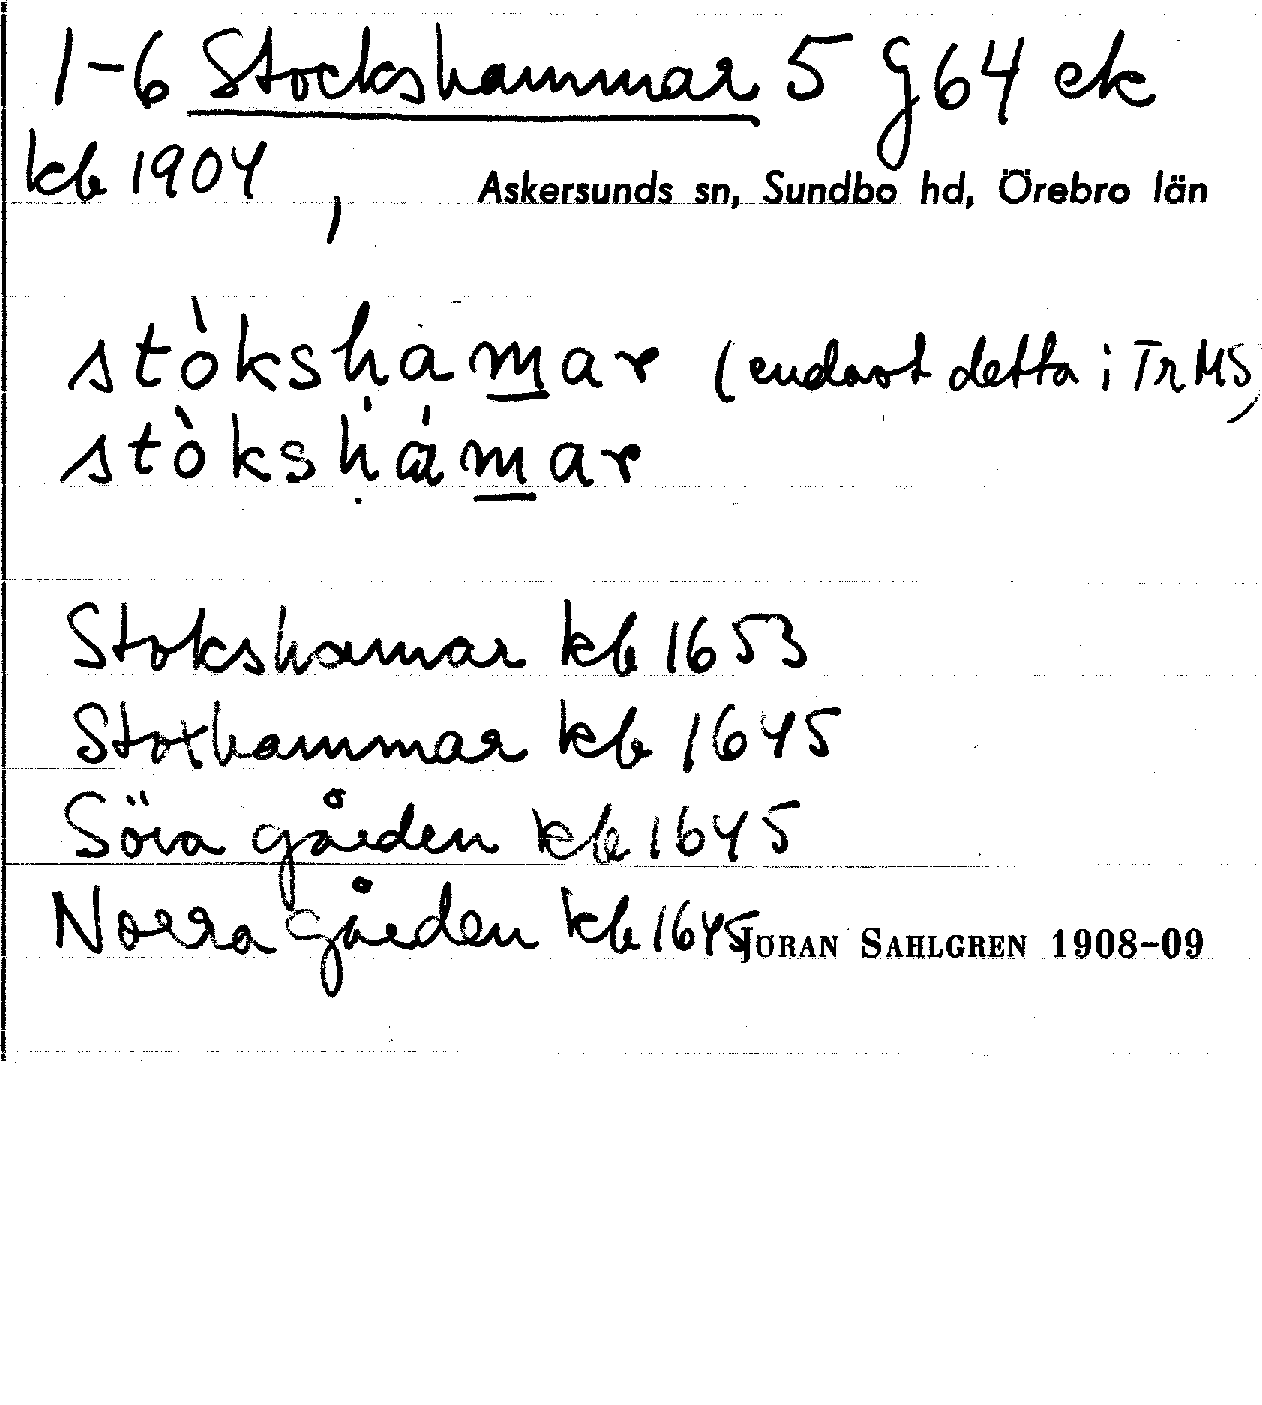 1-6 Stockshammar 5 G64 ek
kb 1904,
Askersunds sn, Sundbo hd, Örebro län
stòkshamar (endast detta i TrMS)
stòkshámar
Stokshamar kb 1653
Stoxhammar kb 1645
Söra gården kb 1645
Norra gården kb 1645
JÖRAN SAHLGREN 1908-09